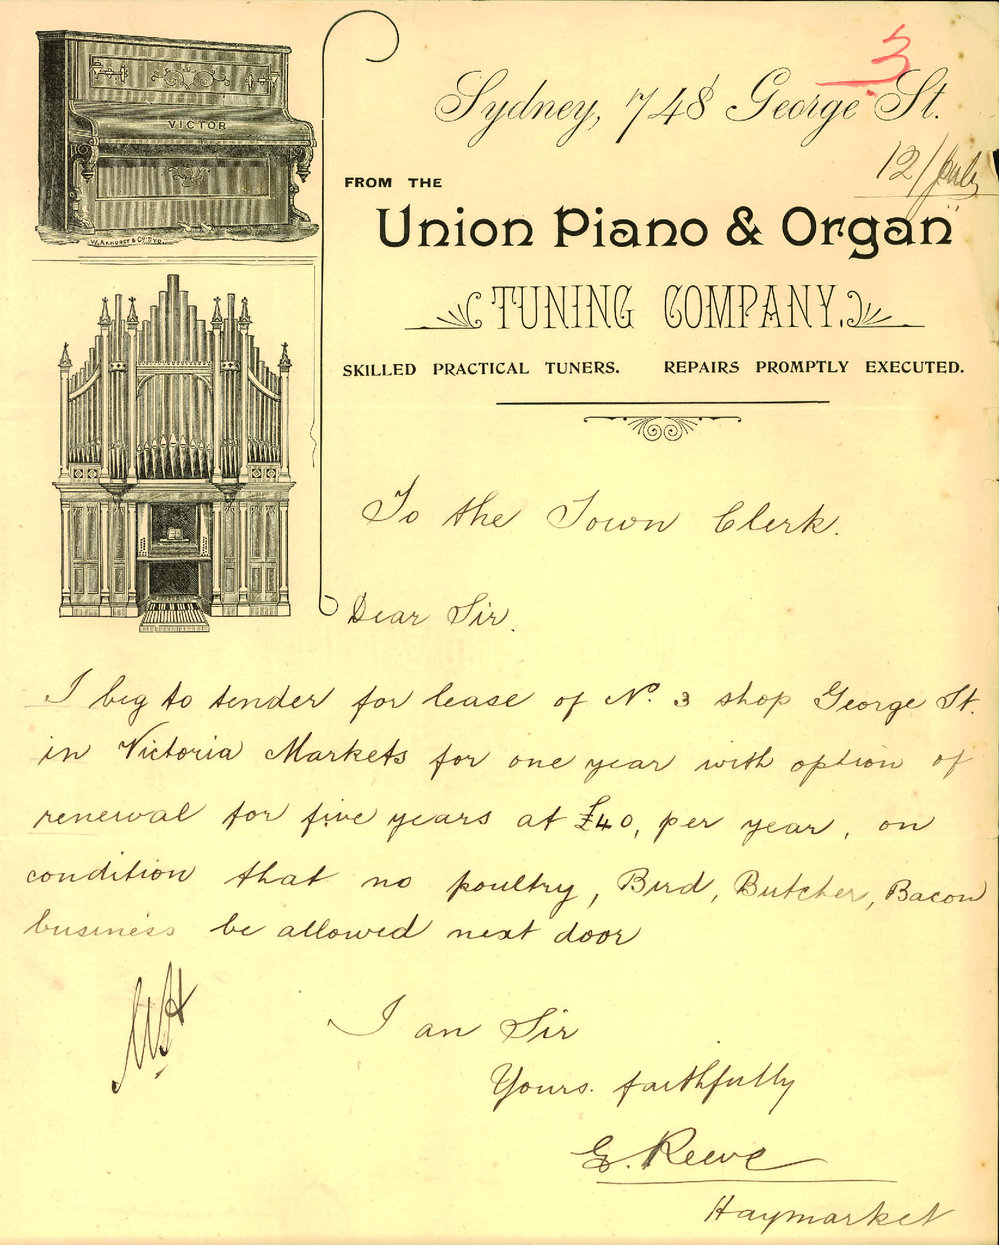 3
VICTOR
W. AKHURST & Co SYD.
Sydney, 748 George St.
12/July
FROM THE
Union Piano & Organ
TUNING COMPANY.
SKILLED PRACTICAL TUNERS. REPAIRS PROMPTLY EXECUTED.
To the Town Clerk.
Dear Sir.
I beg to tender for lease of No. 3 shop George St.
in Victoria Markets for one year with option of
renewal for five years at £40, per year, on
condition that no poultry, Bird, Butcher, Bacon
business be allowed next door
I am Sir
Yours. faithfully
E. Reeve
Haymarket